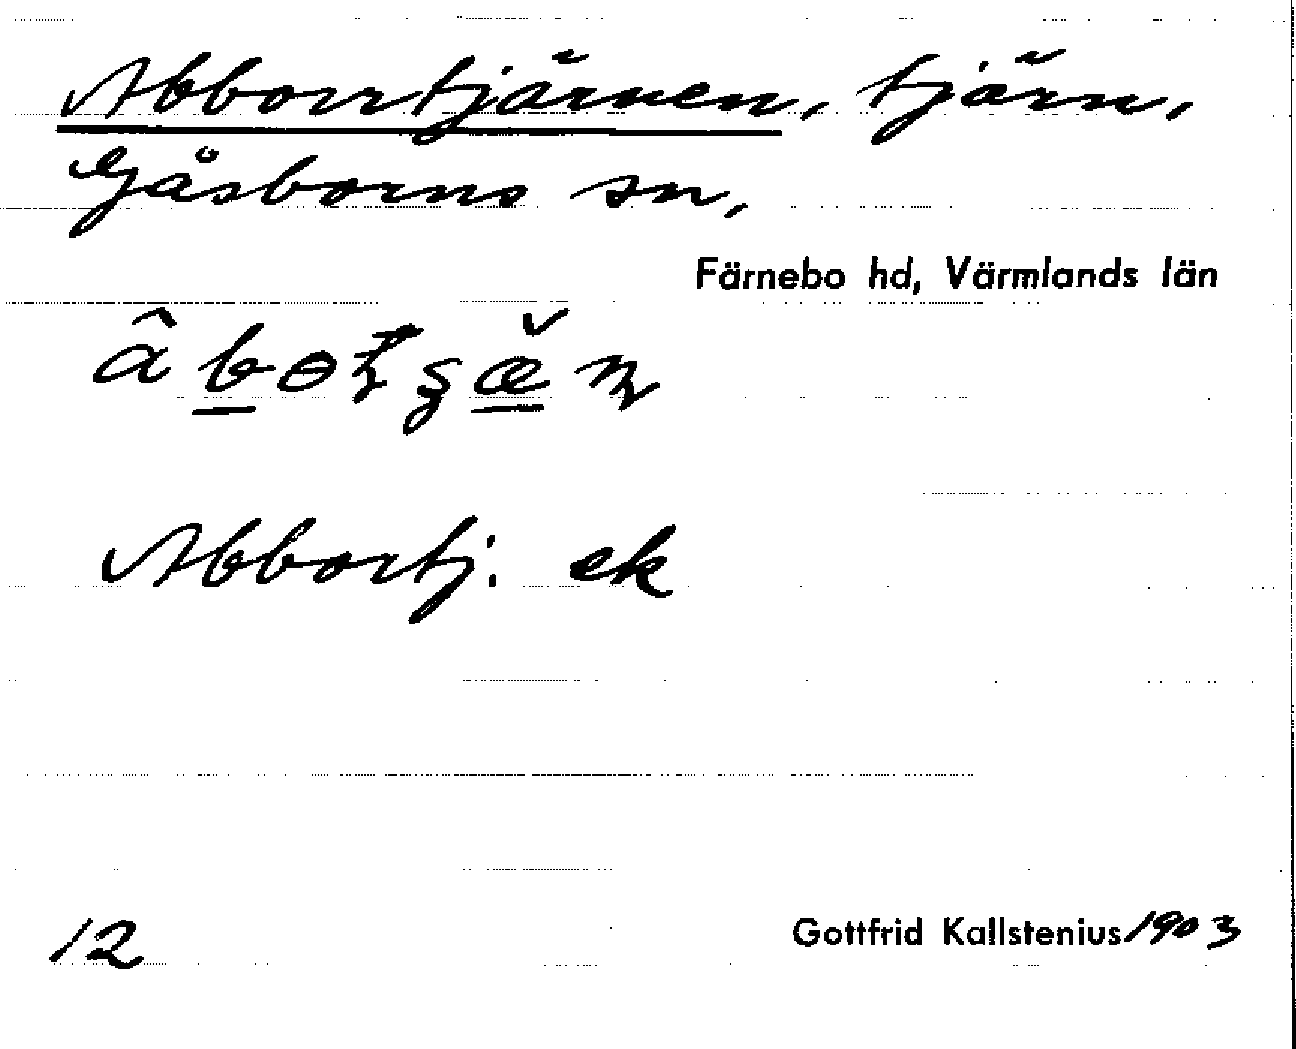 Abborrtjärnen, tjärn,
Gåsborns sn,
Färnebo hd, Värmlands län
Abbortj: ek
12
Gottfrid Kallstenius 1903